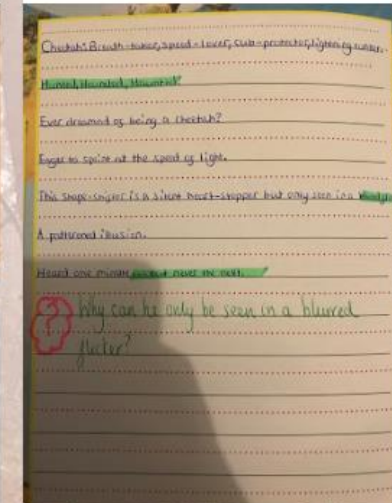 Cheetah: Breath-taker, speed-lover, cub-protector, lightning runner.
Hunted, Hounded, Haunted!
Ever dreamed of being a cheetah?
Eager to sprint at the speed of light.
This shape-shifter is a silent heart-stopper but only seen in a
A patterned illusion.
Heard one minute never the next.
? Why can he only be seen in a blurred
flicker?